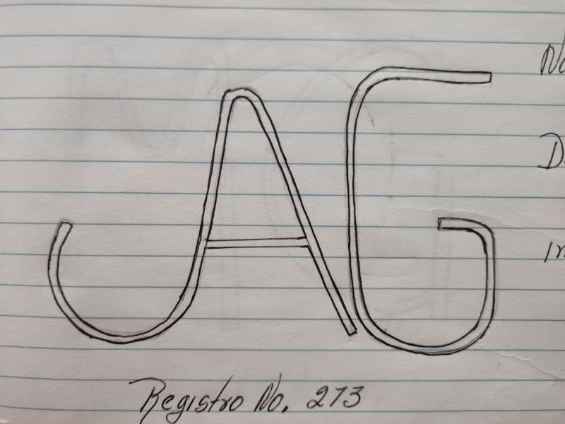 JAG
Registro No. 273